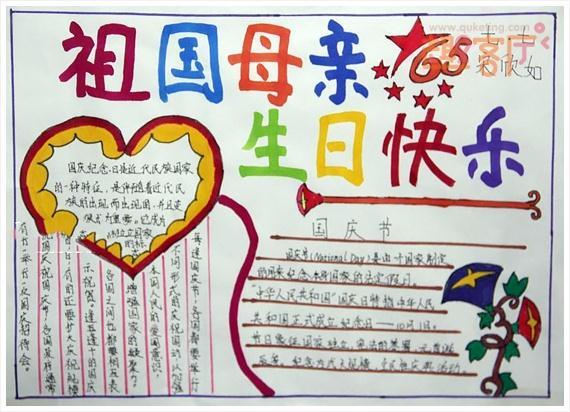 www.quketing.com
祖国母亲
65
生日快乐
欣如
国庆纪念日是近代民族国家
的一种特征，是伴随着近代民
族国家的出现而出现的，并且变
得尤为重要。它成为
独立国家
的标
国庆节
国庆节(National Day)是由一个国家制定
的用来纪念本身国家的法定假日。
“中华人民共和国”国庆日特指中华人民
共和国正式成立纪念日——10月1日。
每逢国庆节，各国都要举行
不同形式的庆祝活动，以加强
本国人民的爱国意识，
增强国家的凝聚力。
各国之间也都要相互表
示祝贺。逢五逢十的国庆
日，有的还要扩大庆祝规模
庆祝国庆节，各国政府通常
有一次国庆招待会。